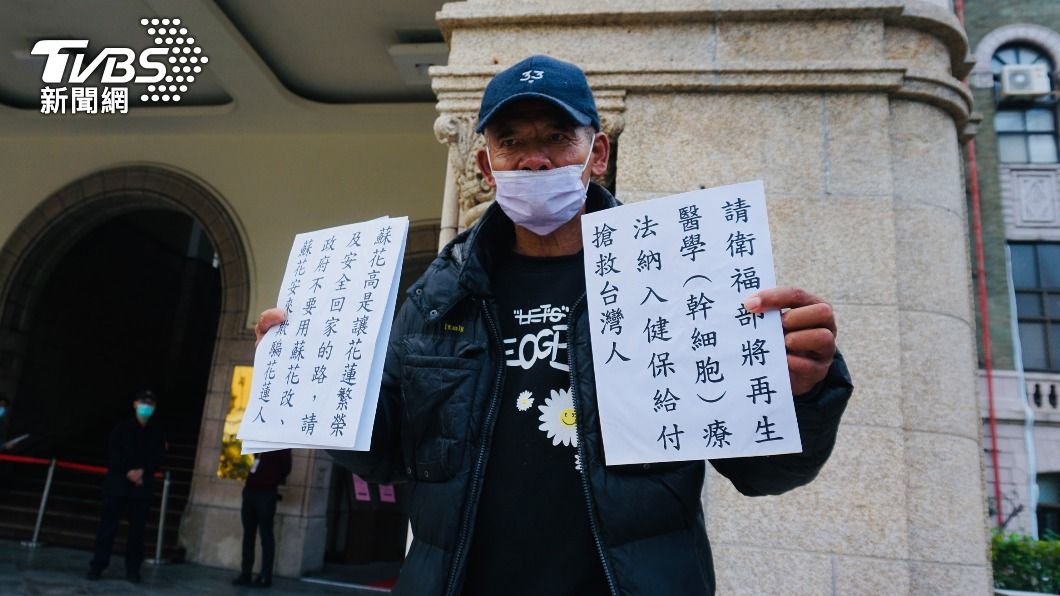 TVBS
新聞網
33
蘇花高是讓花蓮繁榮
及安全回家的路，請
政府不要用蘇花改、
蘇花安來欺騙花蓮人
請衛福部將再生
醫學（幹細胞）療
法納入健保給付
搶救台灣人